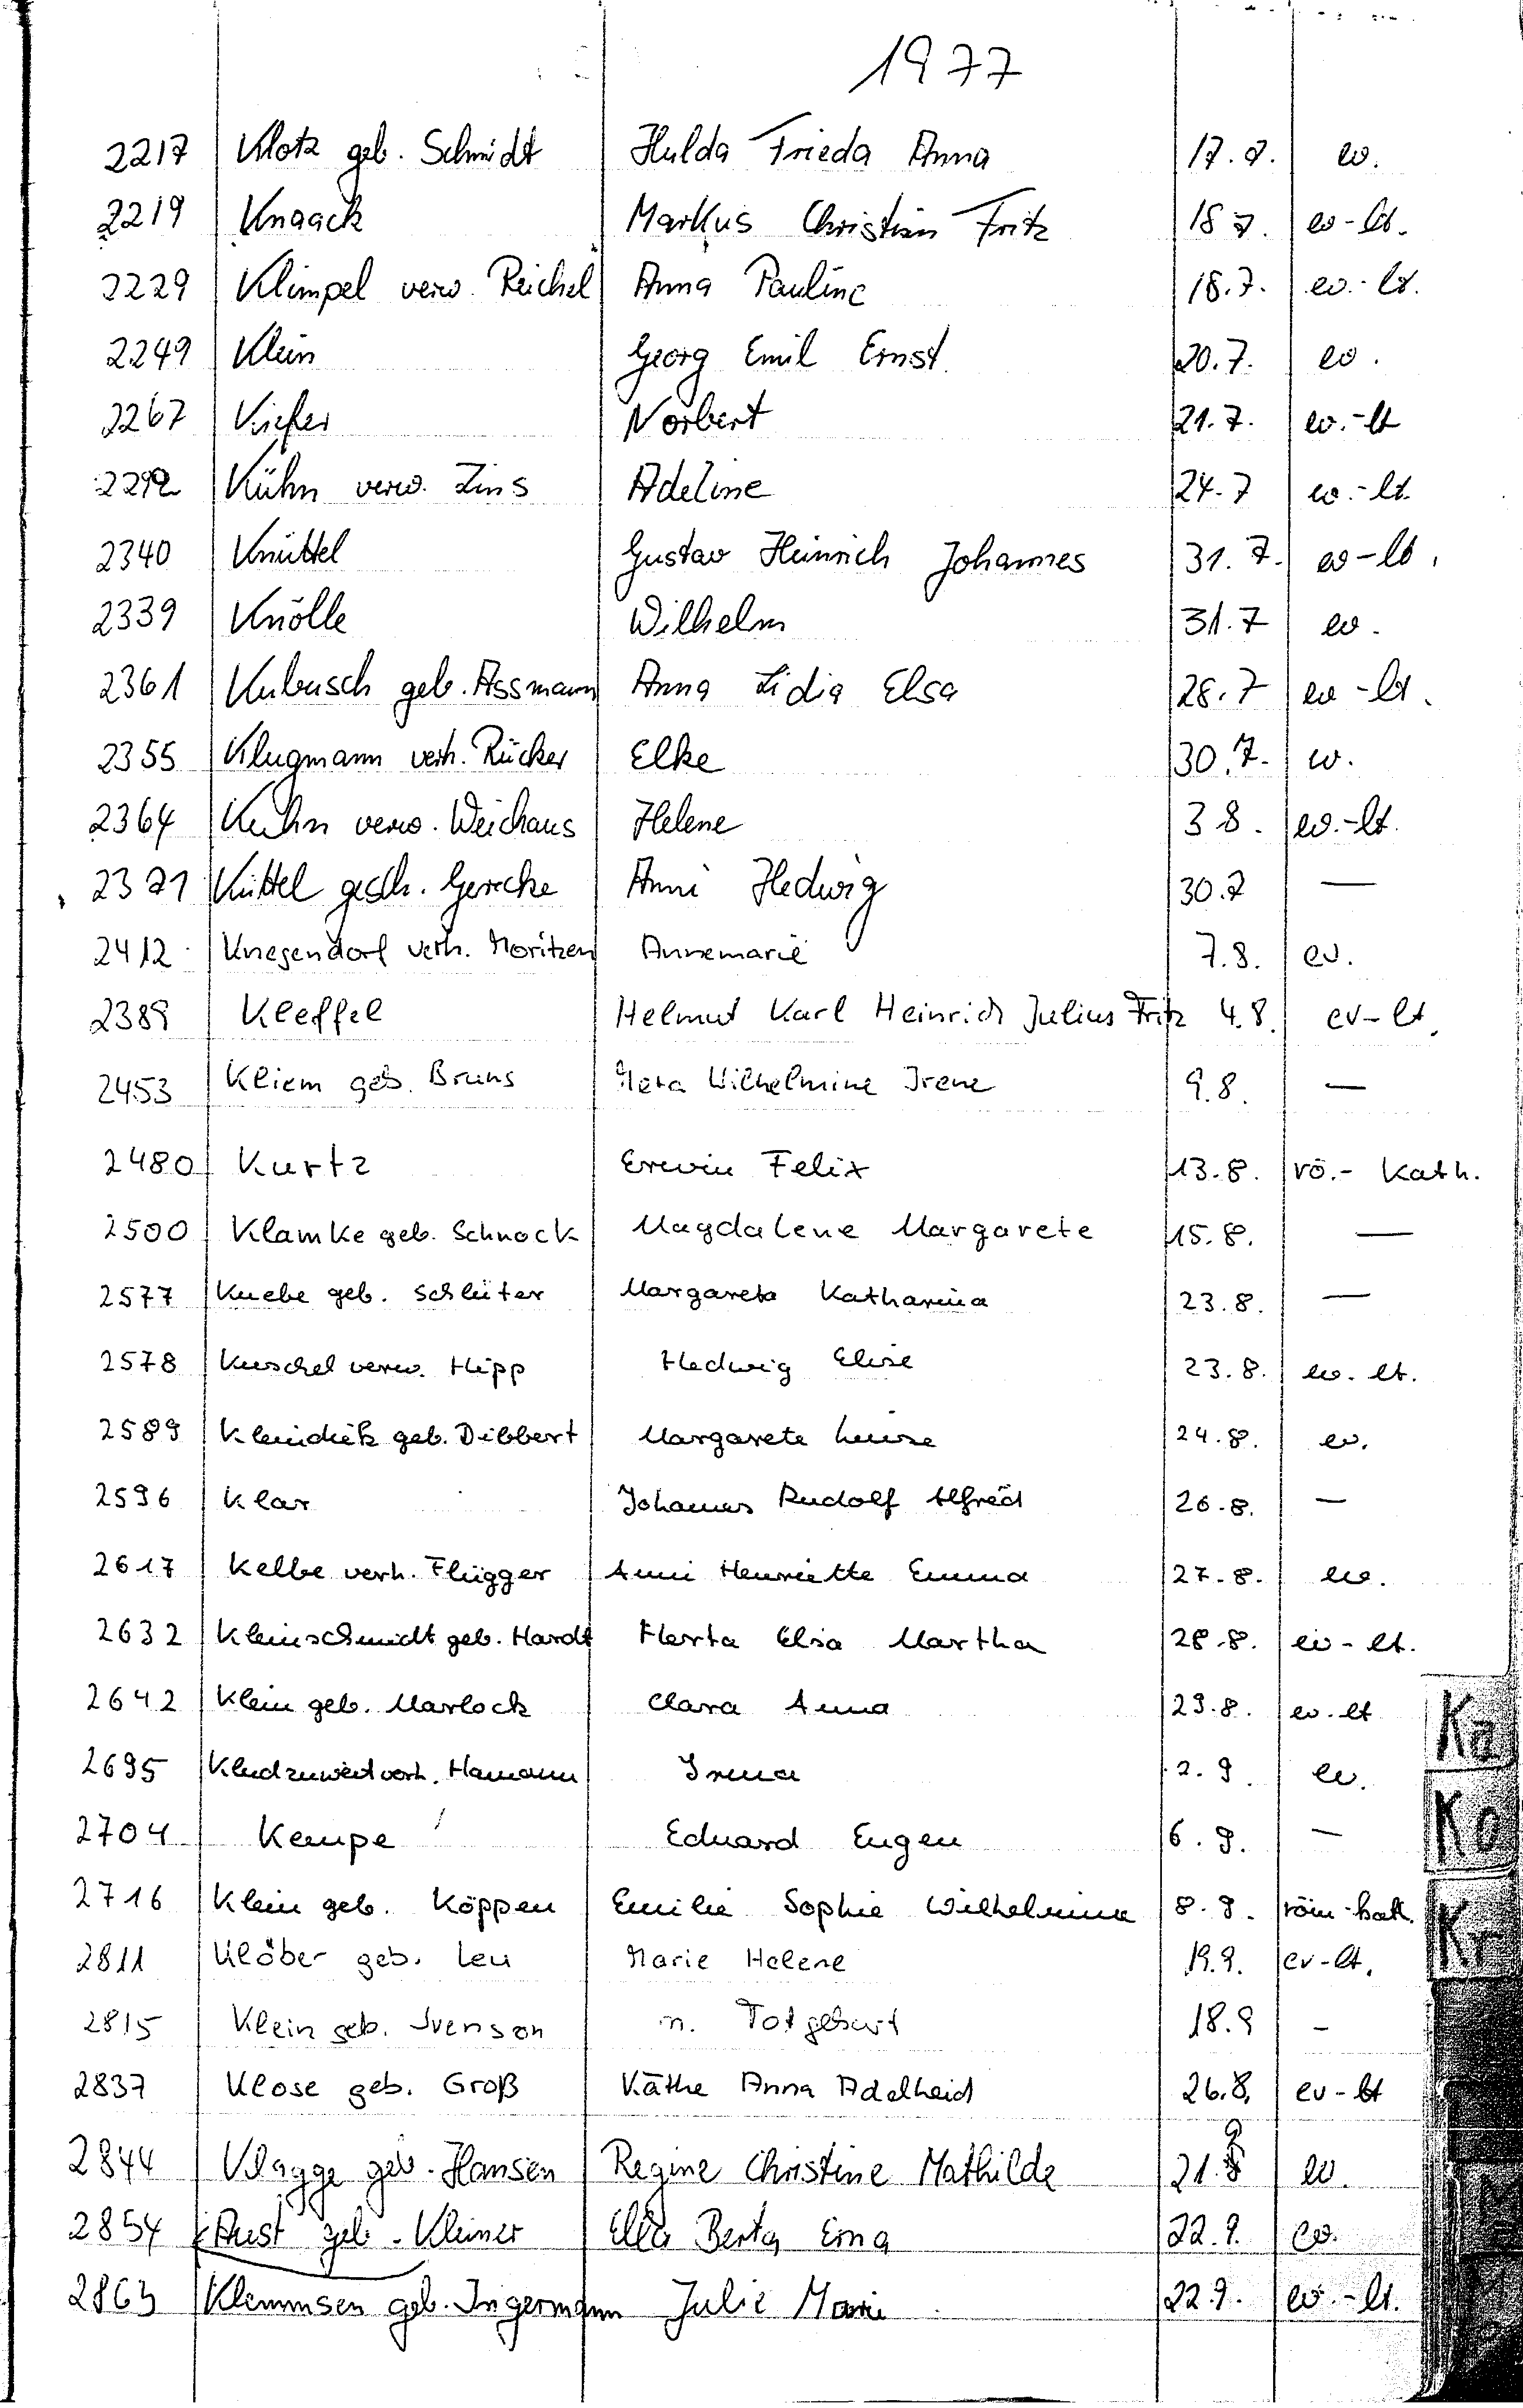 1977
2217 Klotz geb. Schmidt Hulda Frieda Anna 17.7. ev.
2219 Knaack Markus Christian Fritz 18 7. ev-lt.
2229 Klimpel verw. Reichel Anna Pauline 18.7. ev.-lt.
2249 Klein Georg Emil Ernst 20.7. ev.
2267 Kiefer Norbert 21.7. ev.-lt
2292 Kühn verw. Zins Adeline 24.7 ev.-lt.
2340 Knüttel Gustav Heinrich Johannes 31.7. ev-lt.
2339 Knölle Wilhelm 31.7 ev.
2361 Kubusch geb. Assmann Anna Lidia Elsa 28.7 ev-lt.
2355 Klugmann verh. Rücker Elke 30.7. ev.
2364 Kuhn verw. Weichaus Helene 3 8. ev.-lt.
2371 Küttel gesch. Gericke Anni Hedwig 30.7 —
2412 Kriegendorf verh. Moritzen Annemarie 7.8. ev.
2389 Kleffel Helmut Karl Heinrich Julius Fritz 4.8. ev-lt.
2453 Kliem geb. Bruns Meta Wilhelmine Irene 9.8. —
2480 Kurtz Erwin Felix 13.8. rö.- Kath.
2500 Klamke geb. Schnock Magdalene Margarete 15.8. —
2577 Knebe geb. Schlüter Margareta Katharina 23.8. —
2578 Kuschel verw. Hipp Hedwig Elise 23.8. ev. lt.
2589 Kleindiek geb. Dibbert Margarete Luise 24.8. ev.
2596 Klar Johannes Rudolf Alfred 26.8. —
2617 Kelbe verh. Flügger Anni Henriette Emma 27.8. ev.
2632 Kleinschmidt geb. Hardt Herta Elsa Martha 28.8. ev-lt.
2642 Klein geb. Marlock Clara Anna 29.8. ev. lt
2695 verh. Hamann Irma 2.9. ev.
2704 Kempe Eduard Eugen 6.9. —
2716 Klein geb. Köppen Emilie Sophie Wilhelmine 8.9. röm-kath.
2811 Klöber geb. Leu Marie Helene 19.9. ev-lt.
2815 Klein geb. Svenson m. Totgeburt 18.9 -
2837 Klose geb. Groß Käthe Anna Adelheid 26.8. ev-lt
2844 Klagge geb. Hansen Regine Christine Mathilde 21.9 ev.
2854 Aust geb. Kleiner Ella Berta Erna 22.9. ev.
2863 Klemmsen geb. Ingermann Julie Marie 22.9. ev.-lt.
Ka
Ko
Kr